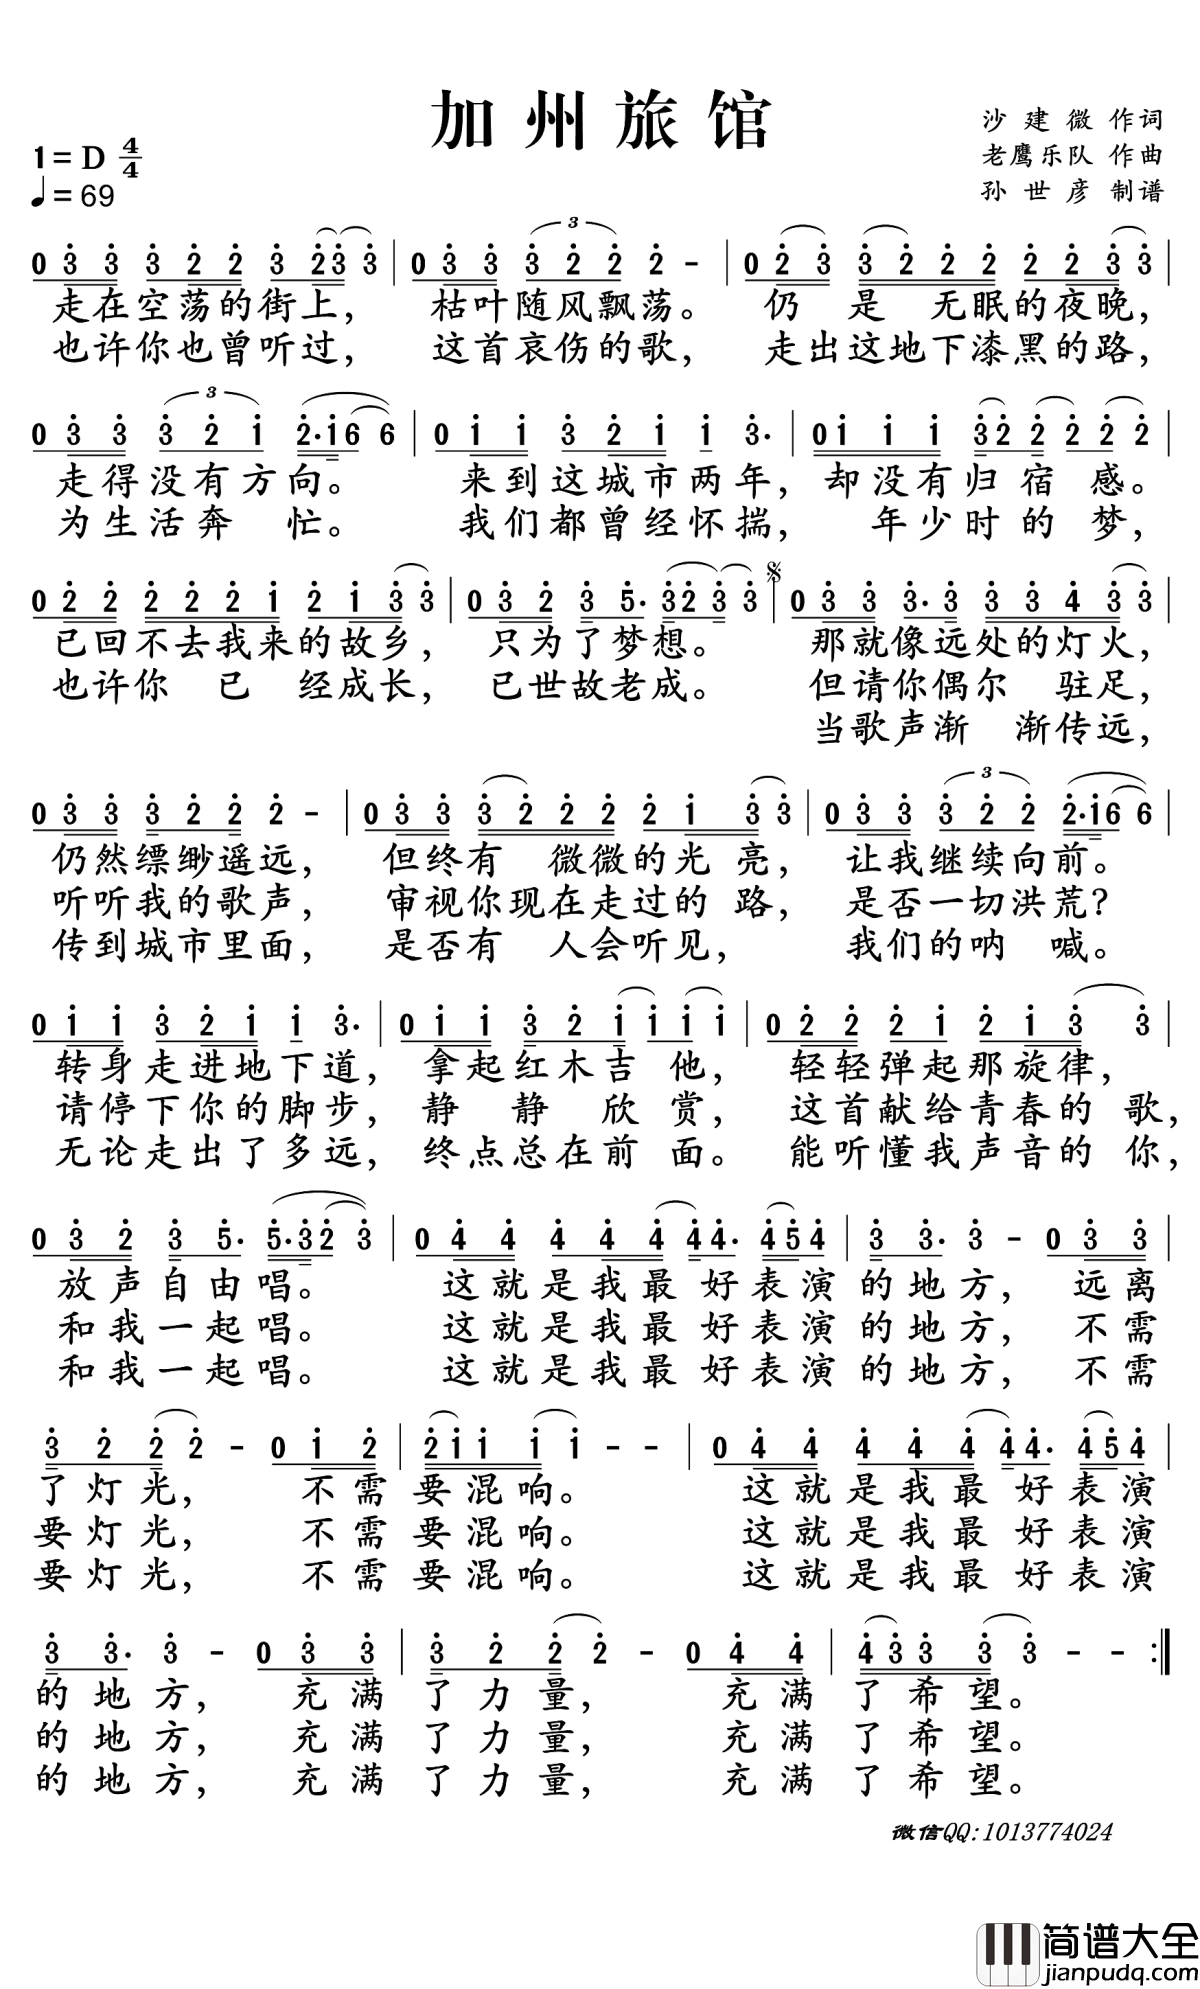 加州旅馆
沙建微 作词
1=D 4/4
老鹰乐队 作曲
♩=69
孙世彦 制谱
0 3 3 3 2 2 3 2 3 3 | 0 3 3 3 2 2 2 - | 0 2 3 3 2 2 2 2 2 3 3 |
走在空荡的街上， 枯叶随风飘荡。 仍是无眠的夜晚，
也许你也曾听过， 这首哀伤的歌， 走出这地下漆黑的路，
0 3 3 3 2 1 2·1 6 6 | 0 1 1 3 2 1 1 3· | 0 1 1 1 3 2 2 2 2 2 |
走得没有方向。 来到这城市两年， 却没有归宿感。
为生活奔忙。 我们都曾经怀揣， 年少时的梦，
0 2 2 2 2 2 1 2 1 3 3 | 0 3 2 3 5· 3 2 3 3 | 0 3 3 3· 3 3 3 4 3 3 |
已回不去我来的故乡， 只为了梦想。 那就像远处的灯火，
也许你已经成长， 已世故老成。 但请你偶尔驻足，
当歌声渐渐传远，
0 3 3 3 2 2 2 - | 0 3 3 3 2 2 2 2 1 3 3 | 0 3 3 3 2 2 2·1 6 6 |
仍然缥缈遥远， 但终有微微的光亮， 让我继续向前。
听听我的歌声， 审视你现在走过的路， 是否一切洪荒？
传到城市里面， 是否有人会听见， 我们的呐喊。
0 1 1 3 2 1 1 3· | 0 1 1 3 2 1 1 1 1 | 0 2 2 2 1 2 1 3 3 |
转身走进地下道， 拿起红木吉他， 轻轻弹起那旋律，
请停下你的脚步， 静静欣赏， 这首献给青春的歌，
无论走出了多远， 终点总在前面。 能听懂我声音的你，
0 3 2 3 5· 5·3 2 3 | 0 4 4 4 4 4 4 4· 4 5 4 | 3 3· 3 - 0 3 3 |
放声自由唱。 这就是我最好表演的地方， 远离
和我一起唱。 这就是我最好表演的地方， 不需
和我一起唱。 这就是我最好表演的地方， 不需
3 2 2 2 - 0 1 2 | 2 1 1 1 1 - - | 0 4 4 4 4 4 4 4· 4 5 4 |
了灯光， 不需要混响。 这就是我最好表演
要灯光， 不需要混响。 这就是我最好表演
要灯光， 不需要混响。 这就是我最好表演
3 3· 3 - 0 3 3 | 3 2 2 2 - 0 4 4 | 4 3 3 3 3 - - :|
的地方， 充满了力量， 充满了希望。
的地方， 充满了力量， 充满了希望。
的地方， 充满了力量， 充满了希望。
微信QQ:1013774024
简谱大全
jianpudq.com